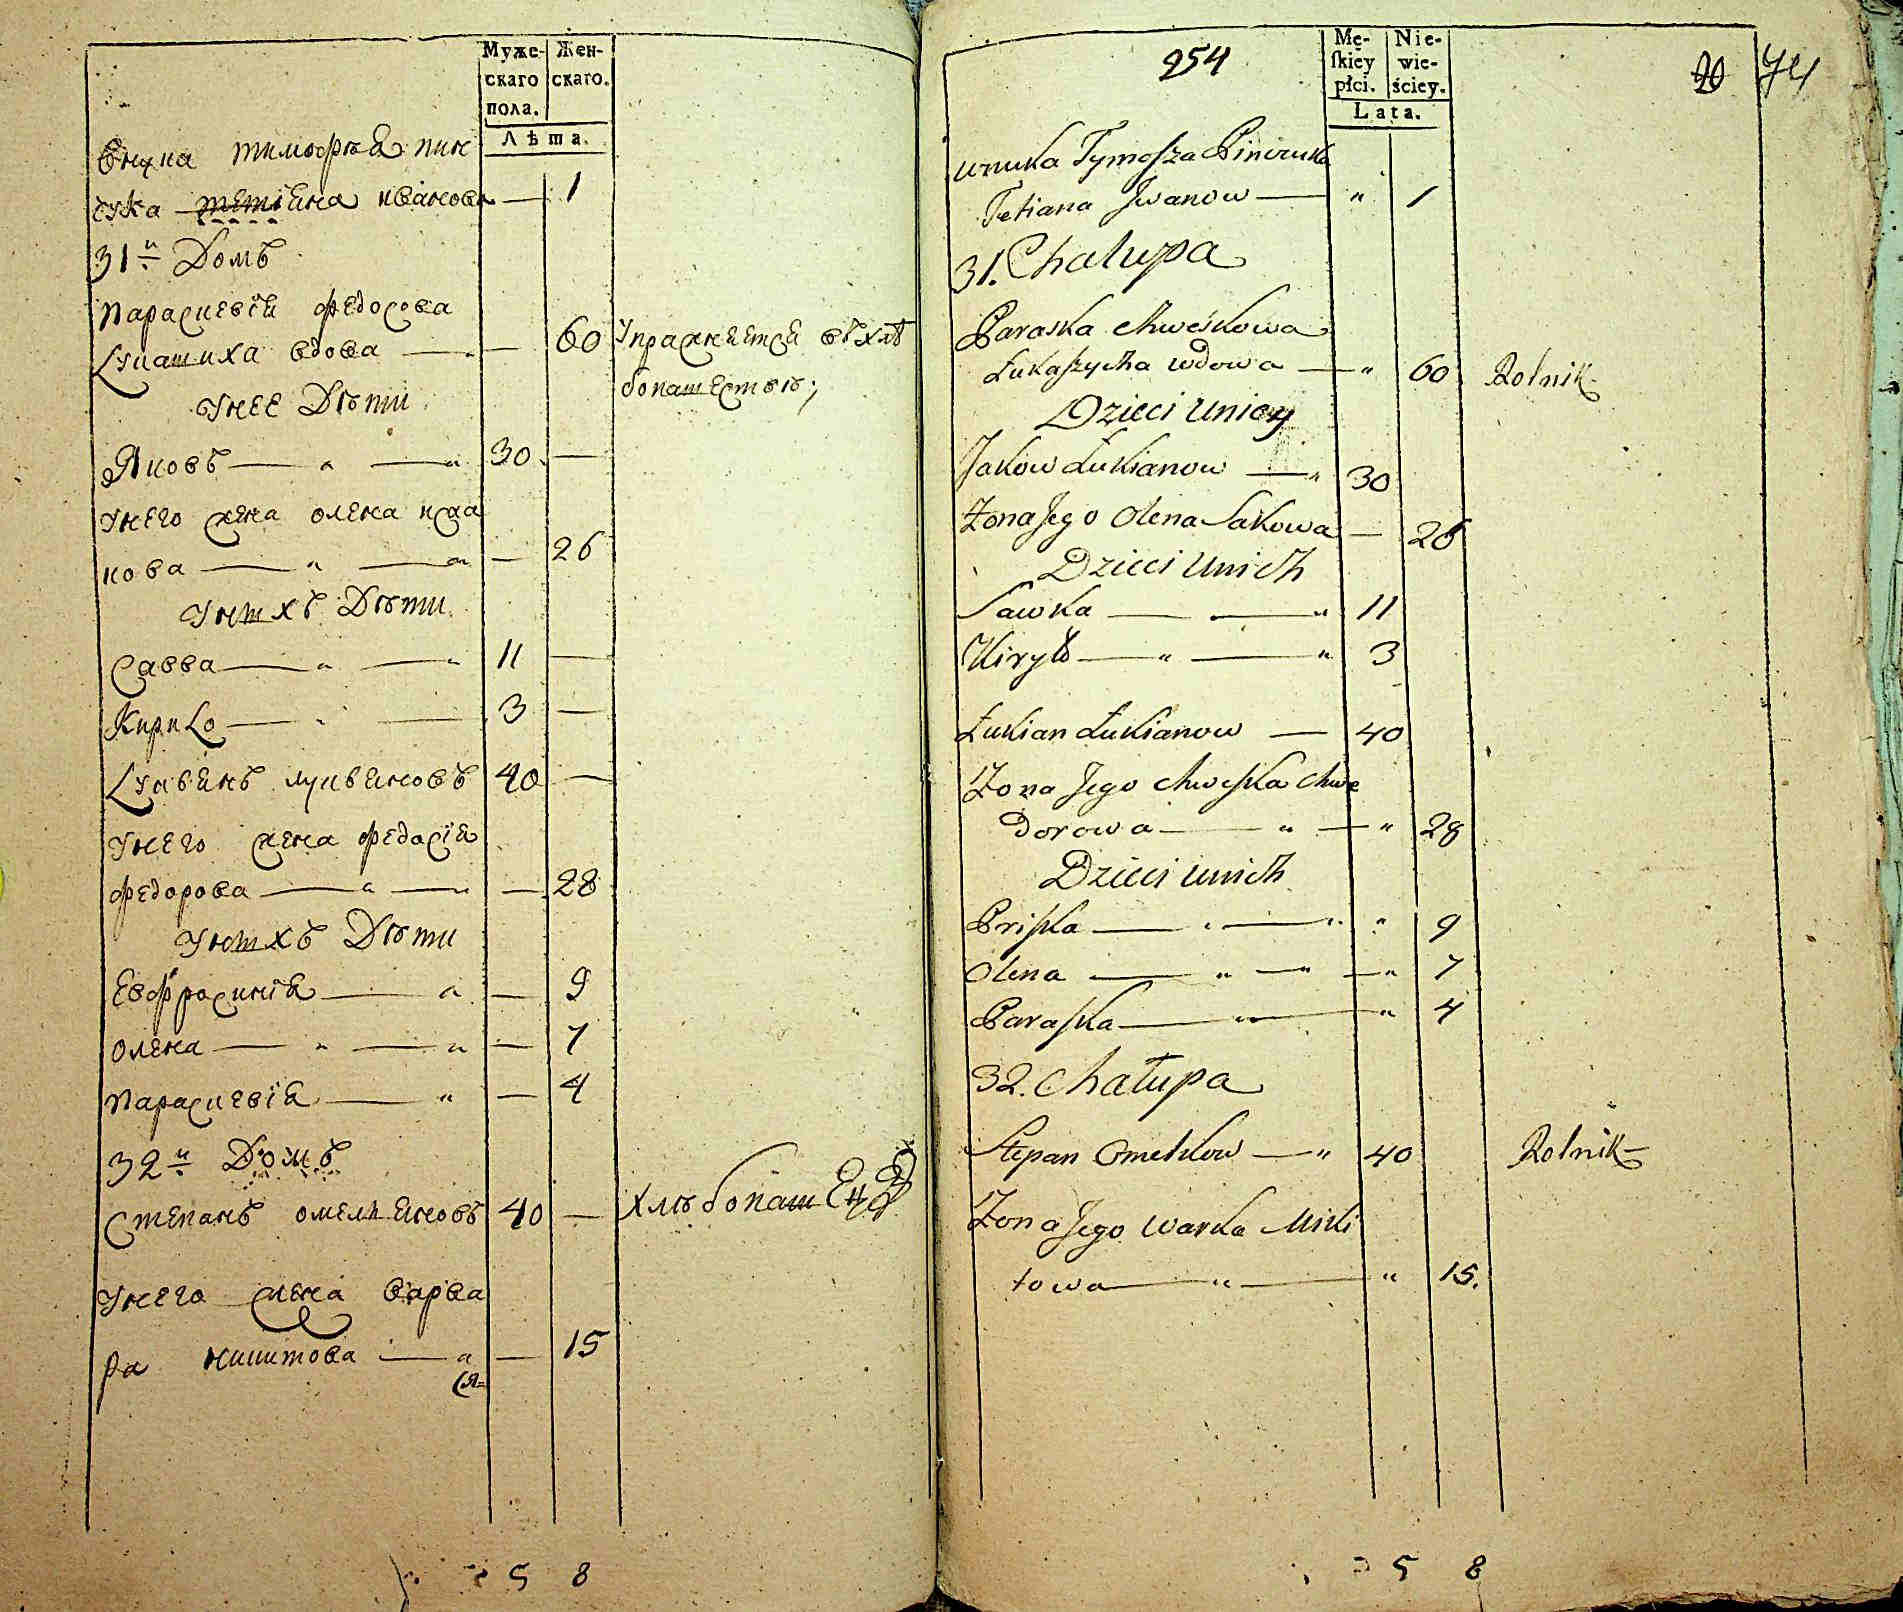 Муже-
скаго
пола.
Жен-
скаго.
Лѣта.
внука тимофѣя пин
чука тетіяна иванова — 1
31й Домъ
параскевія федосова
Lукашиха вдова — — 60 Упражняется въ хлѣ
бопашествѣ;
У нее Дѣти
Яковъ — „ — „ 30 —
У него жена олена исаа
кова — „ — „ — 26
У нихъ Дѣти
Савва — „ — „ 11 —
КириLо — „ — 3 —
Lукьянъ лукьяновъ 40 —
У него жена федосія
федорова — „ — „ — 28
У нихъ Дѣти
Евфросинія — „ — 9
олена — „ — „ — 7
параскевія — „ — 4
32й Домъ
Степанъ омельяновъ 40 — хлѣбопашецъ
У него жена варва
ра никитова — „ — 15
5 8
254
20 74
Mę-
ſkiey
płci.
Nie-
wie-
ściey.
Lata.
wnuka Tymosza Pinczuka
Tetiana Jwanow — „ 1
31. Chałupa
Paraska Chweśkowa
Łukaszycha wdowa — „ 60 Rolnik
Dzieci u niey
Jakow Łukianow — „ 30
Żona Jego Olena Sakowa — 26
Dzieci u nich
Sawka — — „ 11
Kiryło — „ — „ 3
Łukian Łukianow — 40
Żona Jego Chweſka Chwe
dorowa — „ — „ 28
Dzieci u nich
Priſka — „ — „ „ 9
Olena — „ — „ — „ 7
Paraſka — „ — „ 4
32. Chałupa
Stepan Omelkow — „ 40 Rolnik
Żona Jego Warka Miki
towa — „ — „ 15.
5 8